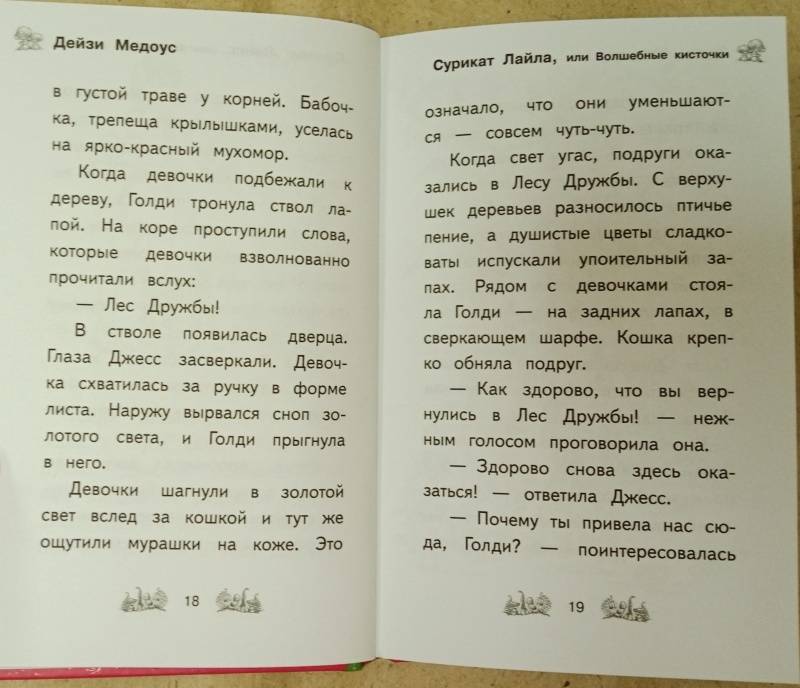 Дейзи Медоус
в густой траве у корней. Бабоч-
ка, трепеща крылышками, уселась
на ярко-красный мухомор.
Когда девочки подбежали к
дереву, Голди тронула ствол ла-
пой. На коре проступили слова,
которые девочки взволнованно
прочитали вслух:
— Лес Дружбы!
В стволе появилась дверца.
Глаза Джесс засверкали. Девоч-
ка схватилась за ручку в форме
листа. Наружу вырвался сноп зо-
лотого света, и Голди прыгнула
в него.
Девочки шагнули в золотой
свет вслед за кошкой и тут же
ощутили мурашки на коже. Это
18
Сурикат Лайла, или Волшебные кисточки
означало, что они уменьшают-
ся — совсем чуть-чуть.
Когда свет угас, подруги ока-
зались в Лесу Дружбы. С верху-
шек деревьев разносилось птичье
пение, а душистые цветы сладко-
ваты испускали упоительный за-
пах. Рядом с девочками стоя-
ла Голди — на задних лапах, в
сверкающем шарфе. Кошка креп-
ко обняла подруг.
— Как здорово, что вы вер-
нулись в Лес Дружбы! — неж-
ным голосом проговорила она.
— Здорово снова здесь ока-
заться! — ответила Джесс.
— Почему ты привела нас сю-
да, Голди? — поинтересовалась
19